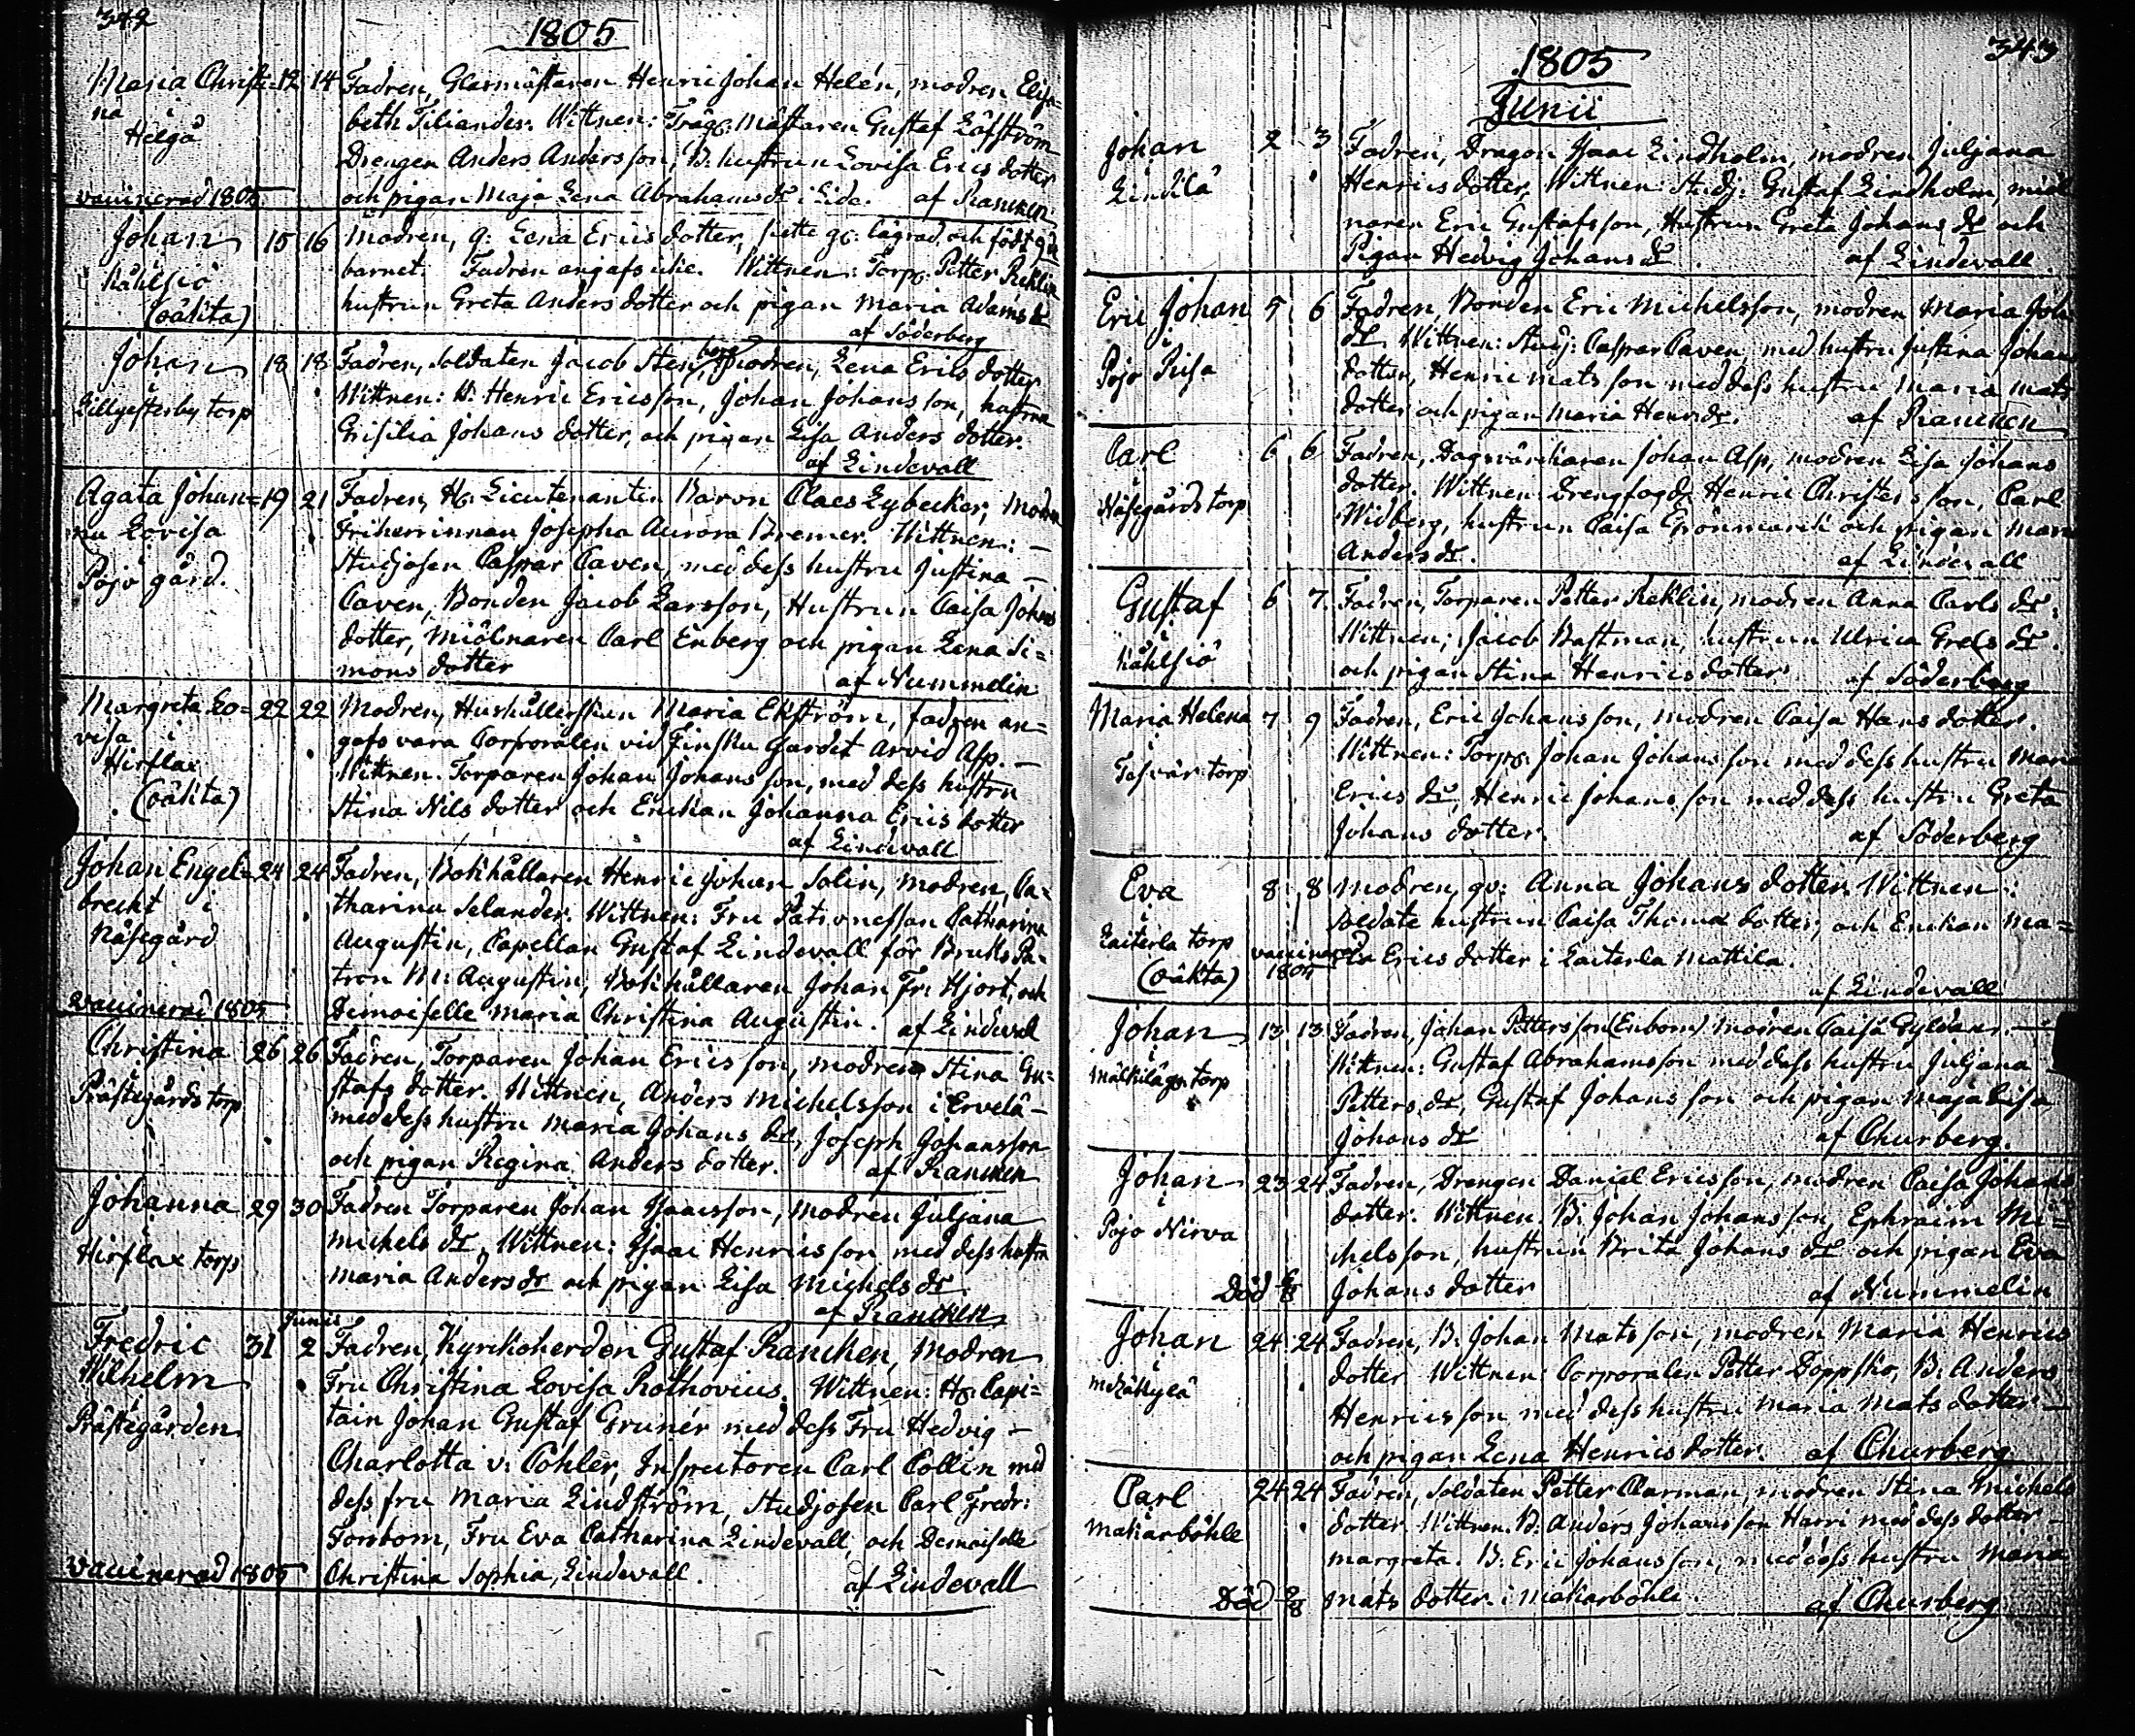 342
1805
Maria Christi= 12 14 Fadren, Glasmästaren Henric Johan Helén, modren Elisa=
na i beth Tiliander. Wittnen: Trägs. Mästaren Gustaf Löfström
Helgå Drengen Anders Andersson, B. hustrun Lovisa Erics dotter
vaccinerad 1805 och pigan Maja Lena Abrahams dr i Lida. af Rancken
Johan 15 16 Modren, q: Lena Erics dotter, födt
i Kåhlsiö barnet. Fadren angafs icke. Wittnen: Torp. Petter Reklin
(oäkta) hustrun Greta Anders dotter och pigan Maria Adams dr
af Söderberg
Johan 18 18 Fadren, Soldaten Jacob Stenberg Modren, Lena Erics dotter
Lillgesterby torp Wittnen: B. Henric Ericsson, Johan Johansson, hustrun
Grisilia Johans dotter, och pigan Lisa Anders dotter.
af Lindevall
Agata Johan= 19 21 Fadren, Hr. Lieutenanten Baron Claes Lybecker, Modren
na Lovisa Friherrinnan Josepha Aurora Bremer. Wittnen: –
Pojo gård. Studjosen Caspar Caven, med dess hustru Justina –
Caven, Bonden Jacob Larsson, Hustrun Caisa Johans
dotter, Miölnaren Carl Enberg och pigan Lena Si=
mons dotter af Nummelin
Margreta Lo= 22 22 Modren, Hushållerskan Maria Ekström, fadren an=
visa i gafs vara Corporalen vid Finska Gardet Arvid Asp. –
Hirflax Wittnen. Torparen Johan Johansson, med dess hustru
(oäkta) Stina Nils dotter och Enckan Johanna Erics dotter
af Lindevall
Johan Engel= 24 24 Fadren, Bokhållaren Henric Johan Solin, Modren, Ca=
brecht i tharina Selander. Wittnen: Fru Patronessan Catharina
Näsegård Augustin, Capellan Gustaf Lindevall för Bruks Pa=
tron M: Augustin, Bokhållaren Johan Fr: Hjort, och
vaccinerad 1805 Demoiselle Maria Christina Augustin. af Lindevall
Christina 26 26 Fadren, Torparen Johan Ericsson, modren Stina Gu=
i stafs dotter. Wittnen, Anders Michelsson i Ervelä –
Prästegårds torp med dess hustru Maria Johans dr, Joseph Johansson
och pigan Regina Anders dotter. af Rancken
Johanna 29 30 Fadren Torparen Johan Isaacsson, Modren Juljana
i Michels dr, Wittnen: Isaac Henricsson med dess hustru
Hirflax torp Maria Anders dr och pigan Lisa Michels dr.
af Rancken
Junii
Fredric 31 2 Fadren, Kyrckoherden Gustaf Rancken, Modren
Wilhelm Fru Christina Lovisa Rothovius. Wittnen: Hr. Capi=
i tain Johan Gustaf Grunér med dess Fru Hedvig –
Prästegården Charlotta v: Cöhler, Inspectoren Carl Collin med
dess fru Maria Lindström, Studjosen Carl Fredr:
Forsbom, Fru Eva Catharina Lindevall, och Demoiselle
vaccinerad 1805 Christina Sophia Lindevall. af Lindevall
343
1805
Junii
Johan 2 3 Fadren, Dragon Isaac Lindholm, modren Juljana
i Henrics dotter, Wittnen: Studj: Gustaf Lindholm, miöl
Lindila naren Eric Gustafsson, Hustrun Greta Johans dr och
Pigan Hedvig Johans dr. af Lindevall
Eric Johan 5 6 Fadren, Bonden Eric Michelsson, modren Maria Joh
i dr. Wittnen: Studj: Caspar Caven med hustru Justina Johans
Pojo Risa dotter, Henric Matsson med dess hustru Maria Mats
dotter och pigan Maria Henr: dr. af Rancken
Carl 6 6 Fadren, Dagsvärckaren Johan Asp, modren Lisa Johans
i dotter. Wittnen: Drengfogd. Henric Christersson, Carl
Näsegårds torp Widberg, hustrun Caisa Grönmarck och pigan Maria
Anders dr. af Lindevall
Gustaf 6 7 Fadren, Torparen Petter Reklin, modren Anna Carls dr.
i Wittnen; Jacob Bastman, hustrun Ulrica Grels dr
Kåhlsiö och pigan Stina Henrics dotter. af Söderberg
Maria Helena 7 9 Fadren, Eric Johansson, modren Caisa Hans dotter.
i Wittnen: Torp: Johan Johansson med dess hustru Maria
Gesvär torp Erics dr, Henric Johansson med dess hustru Greta
Johans dotter. af Söderberg
Eva 8 8 Modren, qv: Anna Johans dotter, Wittnen:
i Soldate hustrun Caisa Thomæ dotter, och Enckan Ma=
Laiterla torp vaccinerad ria Erics dotter i Laiterla Mattila.
(oäkta) 1805 af Lindevall
Johan 13 13 Fadren, Johan Pettersson (Enbom) Modren Caisa Gyldær. –
i Wittnen: Gustaf Abrahamsson med dess hustru Juljana
torp Petters dr, Gustaf Johansson och pigan Maja Lisa
Johans dr af Churberg.
Johan 23 24 Fadren, Drengen Daniel Ericsson, modren Caisa Johans
i dotter. Wittnen. B. Johan Johansson, Ephraim Mi=
Pojo Nirva chelsson, hustrun Brita Johans dr och pigan Eva
Död Johans dotter af Nummelin
Johan 24 24 Fadren, B. Johan Matsson, modren Maria Henrics
i dotter Wittnen: Corporalen Petter Doppsko, B. Anders
Henricsson med dess hustru Maria Mats dotter –
och pigan Lena Henrics dotter. af Churberg
Carl 24 24 Fadren, Soldaten Petter Carman, modren Stina Michels
Makarböhle dotter. Wittnen. B. Anders Johansson Harri med dess dotter –
Margreta. B. Eric Johansson, med dess hustru Maria
Död Mats dotter i Makarböhle. af Churberg